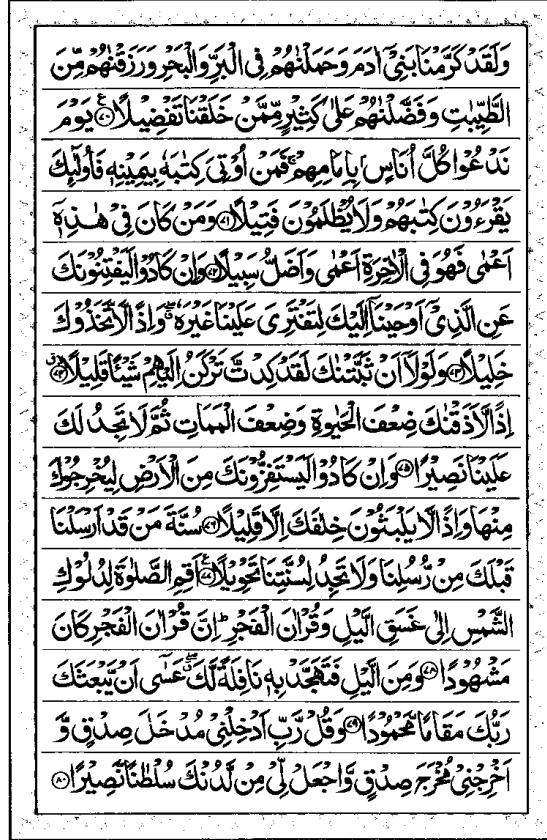 وَلَقَدۡ كَرَّمۡنَا بَنِىۡۤ اٰدَمَ وَحَمَلۡنٰهُمۡ فِى الۡبَرِّ وَالۡبَحۡرِ وَرَزَقۡنٰهُمۡ مِّنَ
الطَّيِّبٰتِ وَفَضَّلۡنٰهُمۡ عَلٰى كَثِيۡرٍ مِّمَّنۡ خَلَقۡنَا تَفۡضِيۡلًا ﴿۷۰﴾ يَوۡمَ
نَدۡعُوۡا كُلَّ اُنَاسٍۢ بِاِمَامِهِمۡ‌ۚ فَمَنۡ اُوۡتِىَ كِتٰبَهٗ بِيَمِيۡنِهٖ فَاُولٰۤٮِٕكَ
يَقۡرَءُوۡنَ كِتٰبَهُمۡ وَلَا يُظۡلَمُوۡنَ فَتِيۡلًا ﴿۷۱﴾ وَمَنۡ كَانَ فِىۡ هٰذِهٖۤ
اَعۡمٰى فَهُوَ فِى الۡاٰخِرَةِ اَعۡمٰى وَاَضَلُّ سَبِيۡلًا ﴿۷۲﴾ وَاِنۡ كَادُوۡا لَيَفۡتِنُوۡنَكَ
عَنِ الَّذِىۡۤ اَوۡحَيۡنَاۤ اِلَيۡكَ لِتَفۡتَرِىَ عَلَيۡنَا غَيۡرَهٗ‌ۖ وَاِذًا لَّاتَّخَذُوۡكَ
خَلِيۡلًا ﴿۷۳﴾ وَلَوۡلَاۤ اَنۡ ثَبَّتۡنٰكَ لَقَدۡ كِدۡتَّ تَرۡكَنُ اِلَيۡهِمۡ شَيۡـًٔـا قَلِيۡلًا ﴿۷۴﴾
اِذًا لَّاَذَقۡنٰكَ ضِعۡفَ الۡحَيٰوةِ وَضِعۡفَ الۡمَمَاتِ ثُمَّ لَا تَجِدُ لَكَ
عَلَيۡنَا نَصِيۡرًا ﴿۷۵﴾ وَاِنۡ كَادُوۡا لَيَسۡتَفِزُّوۡنَكَ مِنَ الۡاَرۡضِ لِيُخۡرِجُوۡكَ
مِنۡهَا وَاِذًا لَّا يَلۡبَثُوۡنَ خِلٰفَكَ اِلَّا قَلِيۡلًا ﴿۷۶﴾ سُنَّةَ مَنۡ قَدۡ اَرۡسَلۡنَا
قَبۡلَكَ مِنۡ رُّسُلِنَا وَلَا تَجِدُ لِسُنَّتِنَا تَحۡوِيۡلًا ﴿۷۷﴾ اَقِمِ الصَّلٰوةَ لِدُلُوۡكِ
الشَّمۡسِ اِلٰى غَسَقِ الَّيۡلِ وَقُرۡاٰنَ الۡفَجۡرِ‌ؕ اِنَّ قُرۡاٰنَ الۡفَجۡرِ كَانَ
مَشۡهُوۡدًا ﴿۷۸﴾ وَمِنَ الَّيۡلِ فَتَهَجَّدۡ بِهٖ نَافِلَةً لَّكَ‌ۖ عَسٰۤى اَنۡ يَّبۡعَثَكَ
رَبُّكَ مَقَامًا مَّحۡمُوۡدًا ﴿۷۹﴾ وَقُلْ رَّبِّ اَدۡخِلۡنِىۡ مُدۡخَلَ صِدۡقٍ وَّ
اَخۡرِجۡنِىۡ مُخۡرَجَ صِدۡقٍ وَّاجۡعَلْ لِّىۡ مِنۡ لَّدُنۡكَ سُلۡطٰنًا نَّصِيۡرًا ﴿۸۰﴾